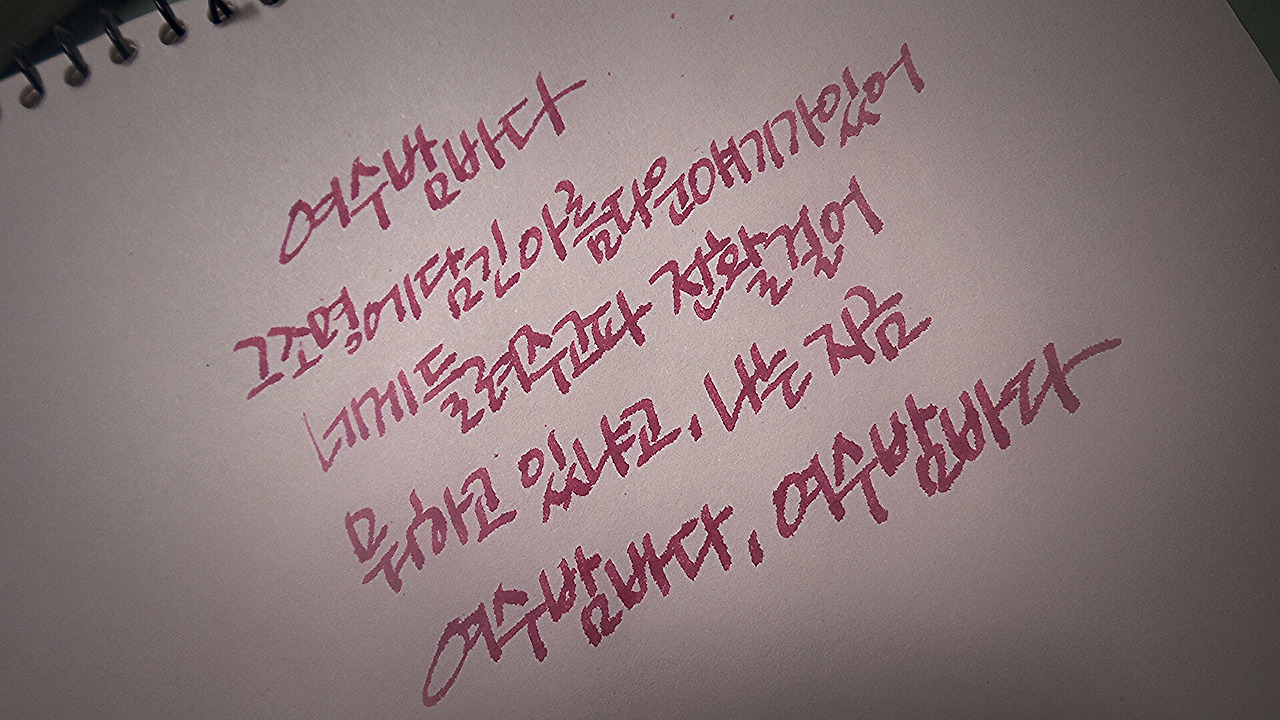 여수밤바다
그조명에담긴아름다운얘기가있어
네게들려주고파 전활걸어
뭐하고 있냐고, 나는 지금
여수밤바다, 여수밤바다